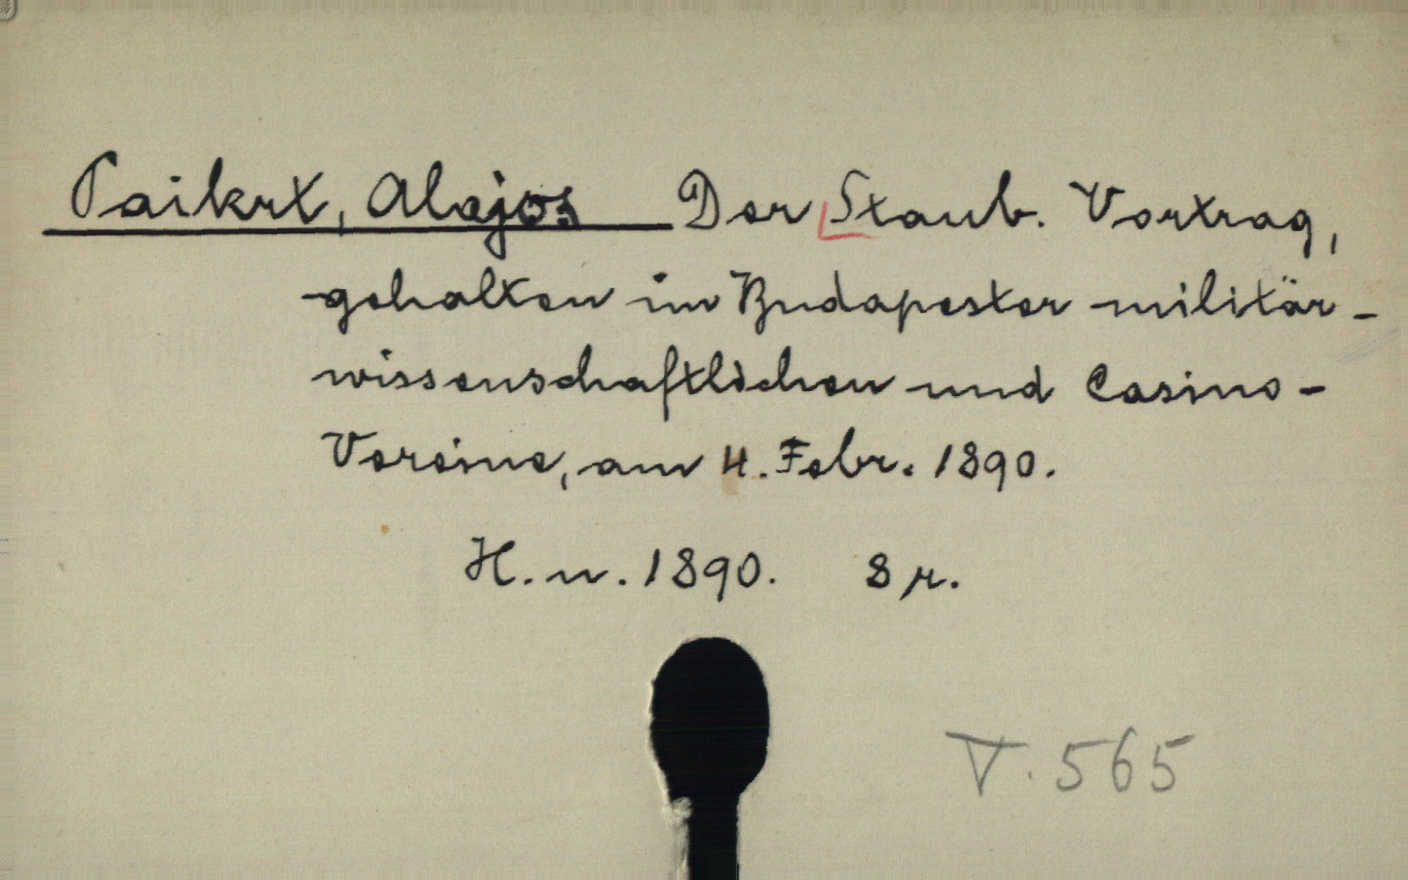 Paikrt, Alajos Der Staub. Vortrag,
gehalten im Budapester militär-
wissenschaftlichen und Casino-
Vereine, am 4. Febr. 1890.
H. n. 1890. 8 r.
V. 565